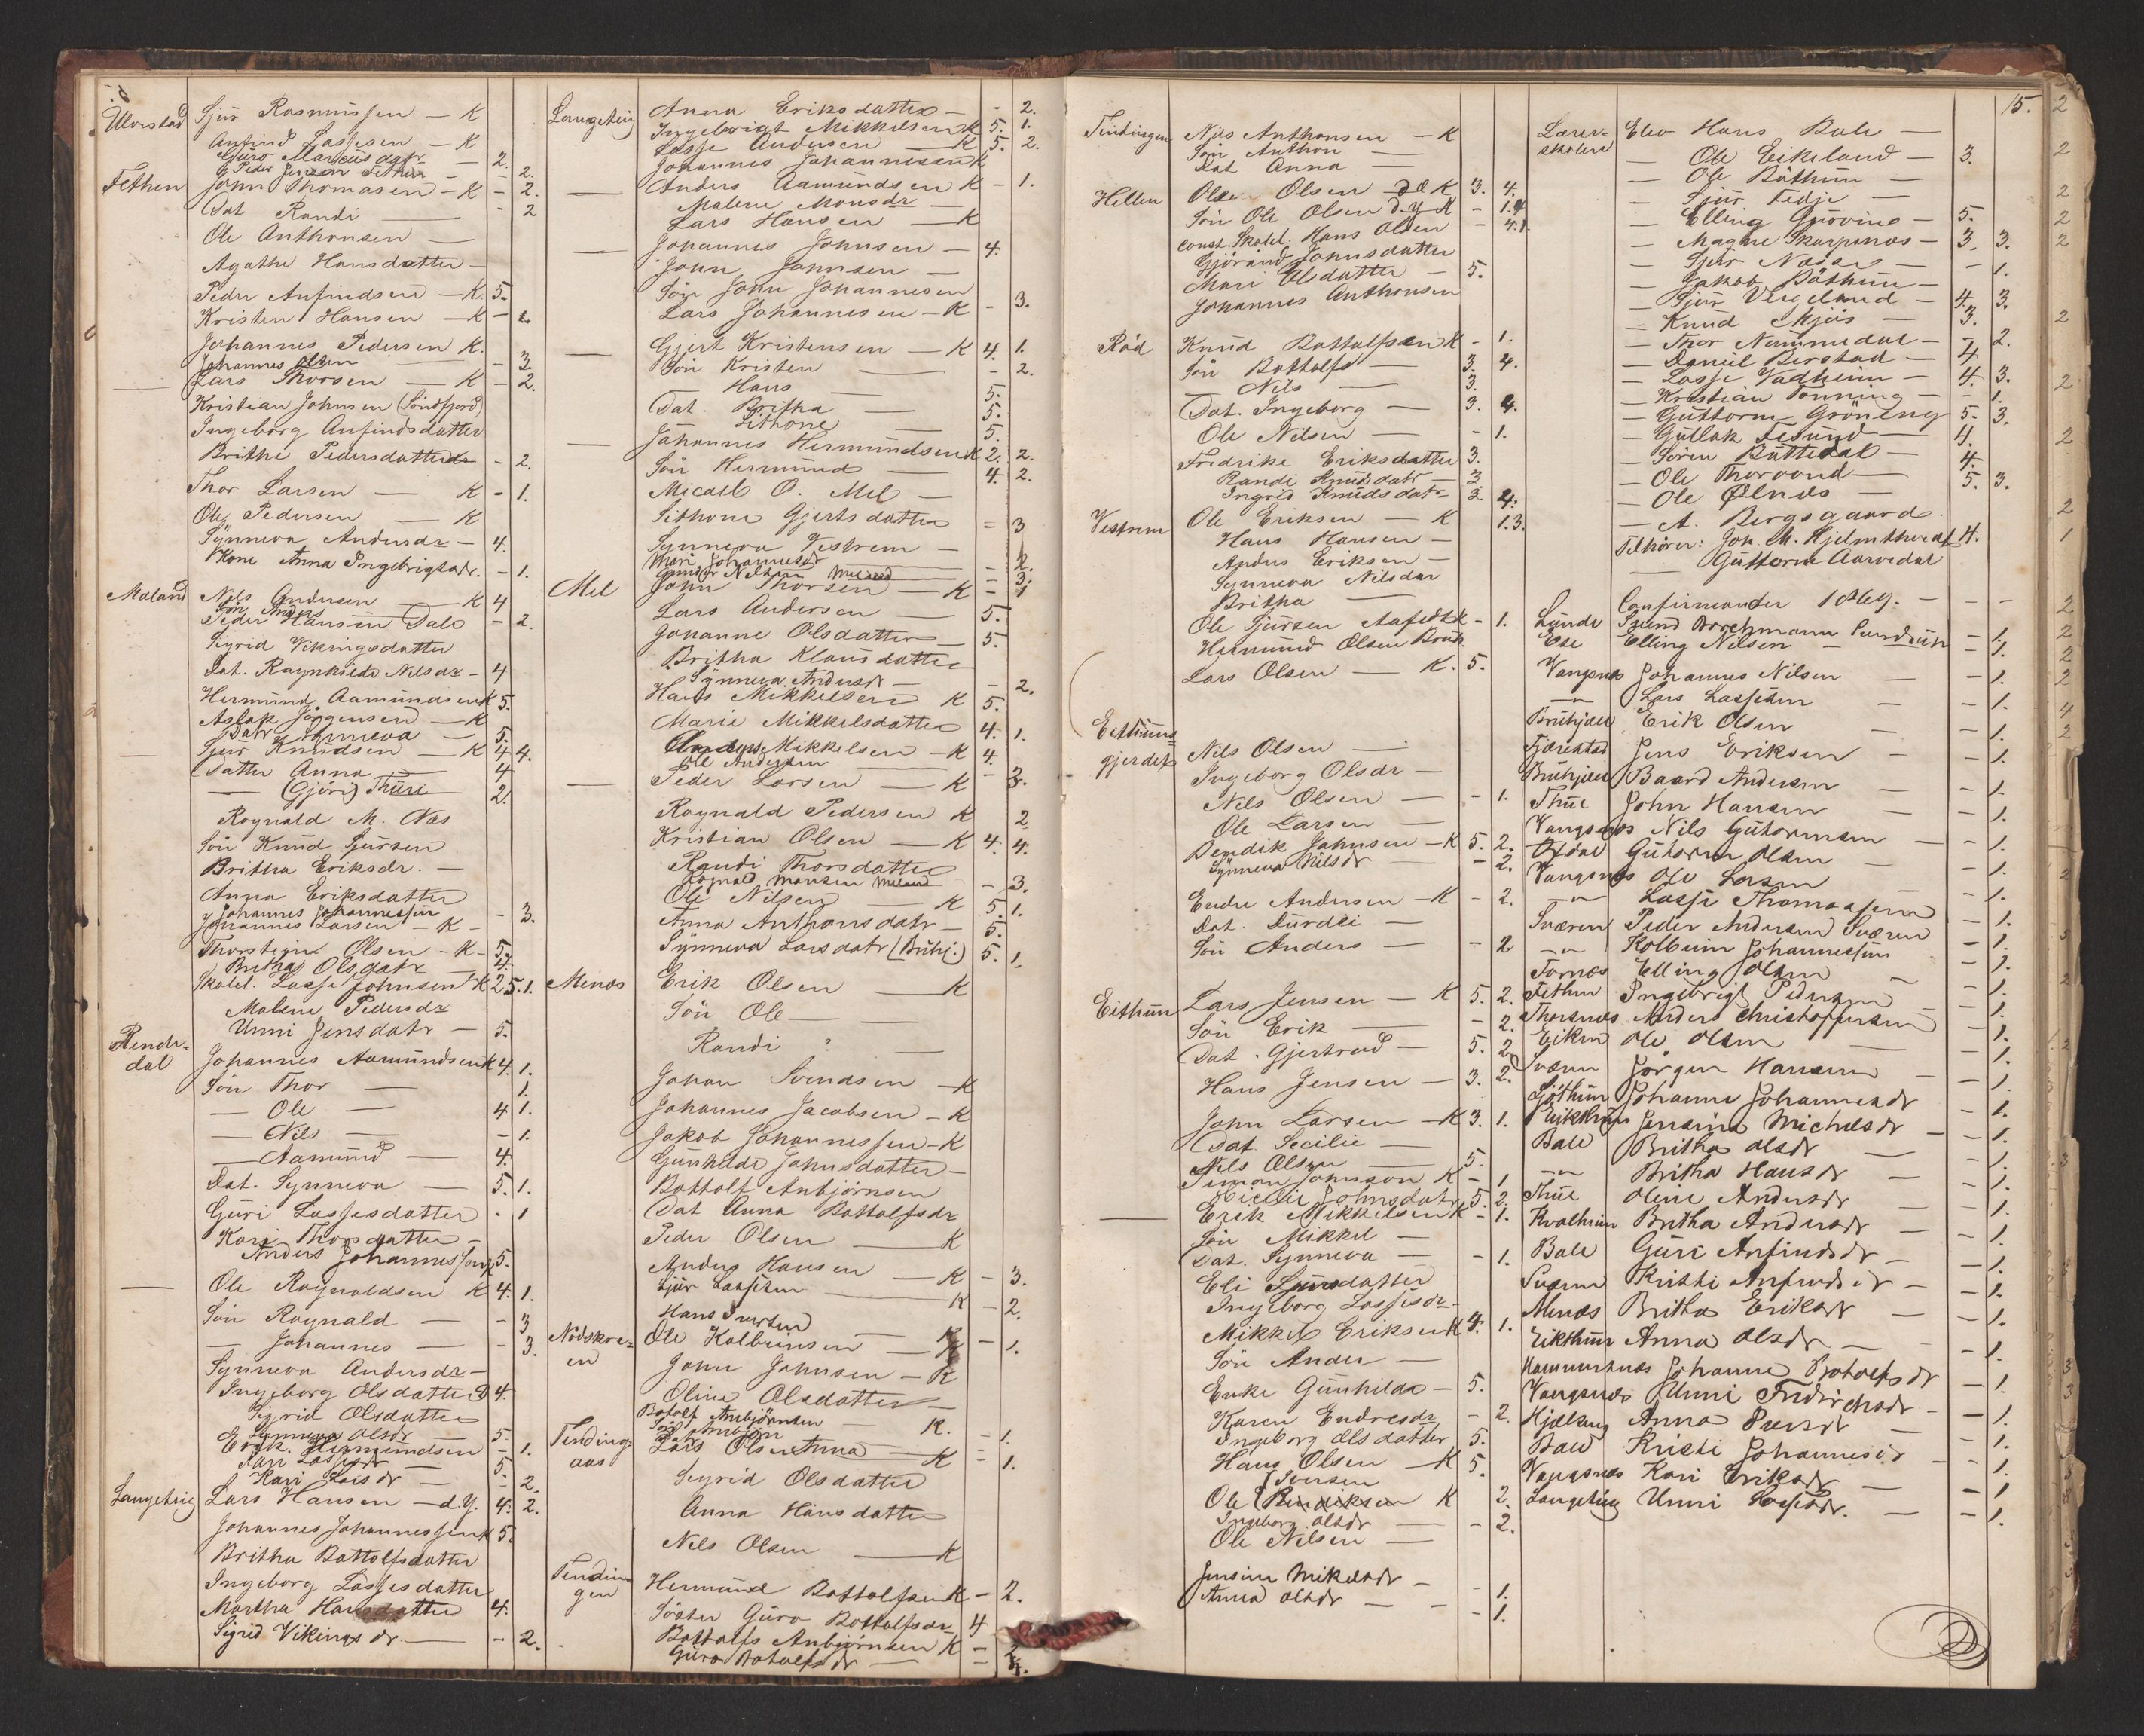 Ulvestad Sjur Rasmussen — K
Anfind Lassesen — K
Guro Marcusdatr — 2.
Peder Jensen Fethun — - 2.
Fethun John Thomasen — K - 2.
Dat Randi — - 2
Ole Anthonsen —
Agathe Hansdatter —
Peder Anfindsen — K. 5.
Kristen Hansen — K -
Johannes Pedersen K.
Johannes Olsen — - 3.
— Lars Thorsen — K - 2.
Kristian Johnsen (Söndfjord)
Ingeborg Anfindsdatter
Brithe Pedersdatter - 2.
Thor Larsen — K - 1.
Ole Pedersen — K
Synneva Andersdr — 4.
Kone Anna Ingebrigtsdr. - 1.
Maland Nils Andersen — K 4
Sön Anders
Peder Hansen Dale - 2.
Sigrid Vikingsdatter
Dat. Raynhilde Nilsdr - 4
Hermund Aamundsen K 5.
Aslak Jörgensen — K
Datr Synneva — 5.
— Sjur Knudsen — K 4 4.
Datter Anna — 4
— (Gjöri) Thüe 2.
Roynald M. Næs
Sön Knud Sjursen
Britha Eriksdr. —
Anna Eriksdatter
Johannes Johannessen - 3.
Johannes Larsen — K -
Thorstein Olsen — K - 5.
Britha Olsdatr 4.
Skolel. Lasse Johnsen K 2 5. 1.
Malene Pedersdr
Unni Jensdatr — 5.
Rende-
dal Johannes Aamundsen K 4. 1.
Sön Thor — 1.
— Ole — 4 1.
— Nils — - 1.
— Aamund — 4.
Dat. Synneva — 5. 1.
Guri Lassesdatter - 1
Kari Thorsdatter —
Anders Johannessen 5.
— Ole Roynaldsen K 4. 1.
Sön Roynald — - 3
— Johannes — - 3.
Synneva Andersdr —
Ingeborg Olsdatter 4.
Sigrid Olsdatter
Synneva Olsdr — 5.
Erik Hermundsen - 1.
Kari Lassesdr — 5.
Kari Larsdr — - 2.
Langeteig Lars Hansen — d.y. 4. 2.
Johannes Johannessen K 5.
Britha Bottolfsdatter
Ingeborg Lassesdatter
Martha Hansdatter 4.
Sigrid Vikingsdr — - 2.
Langeteig Anna Eriksdatter — - 2.
Ingebrigt Mikkelsen K 5. 1.
Lasse Andersen — K 5. 2.
Johannes Johannessen K
— Anders Aamundsen K - 1.
Malene Monsdr —
Lars Hansen — K
— Johannes Johnsen — 4.
John Johnsen —
Sön John Johannesen
Lars Johannesen — K - 3.
— Gjert Kristensen — K 4. 1.
Sön Kristen — - 2.
— Hans — 5.
Dat. Britha — 5.
Sithone 5.
— Johannes Hermundsen K 2. 2.
Sön Hermund — 4. 2.
Micael O. Mel —
Sithone Gjertsdatter - 3
Synneva Vestrem —
Mari Johannesdr - 2.
Nelsen - 3.
Mel John Thorsen — K - 1
Lars Andersen — 5.
Johanne Olsdatter — 5.
Britha Klausdatter
Synneva Andersdr — - 2.
Hans Mikkelsen K 5.
Marie Mikkelsdatter 4. 1.
Anders Mikkelsen — K 4.
Ole Andersen
— Peder Larsen — K - 3.
Roynald Pedersen K 2
Kristian Olsen — K 4. 4.
Randi Thorsdatter
Roynald Monsen Meland - 3.
Ole Nilsen — K 5. 1.
Anna Anthonsdatr — 5.
Synneva Larsdatr (Brühj.) 5. 1.
Menæs Erik Olsen — K
Sön Ole —
Randi ? —
Johan Svendsen — K
Johannes Jacobsen — K
Jakob Johannessen — K
Gunhilde Johnsdatter —
Bottolf Anbjörnsen
Dat Anna Bottolfsdr
Peder Olsen — K
Anders Hansen — K - 3.
Sjur Lassesen — K - 2.
Hans Iversen
Nödskre-
en Ole Kolbeinsen — K - 1.
John Johnsen — K
Oline Olsdatter —
Botolf Anbjörnsen — K. - 1.
Sön Anbjön
Tendings
aas Lars Olsen — K - 1.
Datr Anna
Sigrid Olsdatter
Anna Hansdatter
Nels Olsen — K
Tendin-
gen Hermund Bottolfsen K - 2.
Söster Guro Bottolfsdr 4
Bottolfs Anbjörnsen K -
Guro Botolfsdr — - 4.
15.
Tendingen Nils Anthonsen — K
Sön Anthon —
Dat Anna —
Hellen Ole Olsen d æ K 3. 4.
Sön Ole Olsen d.y. K - 1.
const. Skolel. Hans Olsen - 4.
Gjörand Johnsdatter
Mari Olsdatter — 5.
Johannes Anthonsen
Röd Knud Bottolfsen K - 1.
Sön Bottolfs — 3. 4.
— Nils — 3.
Dat. Ingeborg — 3. 4.
Ole Nilsen — - 1.
Fredrike Eriksdatter 3.
Randi Knudsdatr — 3
Ingrid Knudsdatr 3. 4.
Vestrem Ole Eriksen — K 1. 3.
Hans Hansen —
Anders Eriksen —
Synneva Nilsdar
Britha —
Ole Sjursen Aafedt K - 1.
Hermund Olsen
Lars Olsen — K. 5.
Eithuns-
gjerdet Nils Olsen —
Ingeborg Olsdr —
Nils Olsen — - 1.
Ole Larsen —
Bendik Johnsen — K 5. 2.
Synneva Nilsdr - 2.
Endre Andersen — K - 2.
Dat. Durdei —
Sön Anders — - 2
Eithun Lars Jensen — K 5. 2.
Sön Erik — - 2.
Dat. Gjertrud — 5. 2.
Hans Jensen — 3. 2.
John Larsen — K 3. 1.
Dat. Secilie —
Nils Olsen — 5.
Simon Johnson K - 1
Cicelie Johnsdatr 5. 2.
— Erik Mikkelsen K - 1.
Sön Mikkel —
Dat. Synneva — - 1.
Eli Sjursdatter
Ingeborg Lassesdr —
Mikkel Eriksen K 4. 1.
Sön Ander —
Enke Gunhilda — 5.
Karen Endresdr - 2.
Ingeborg Olsdatter 5.
Hans Olsen — K 5.
Iversen
Ole Bendiksen K 2.
Ingeborg Olsdr — - 2.
Ole Nilsen —
Jensine Mikelsdr — - 1.
Anna Olsdr — - 1.
Lærer-
skolen Elev Hans Bale —
— Ole Eikeland — 3.
— Ole Böthun —
— Sjur Fedje —
— Elling Gjövine — 5.
— Magne Skarpenæs — 3. 3.
— Sjur Næsse — - 1.
— Jakob Böthun —
— Sjur Vegeland — 4. 3.
— Knud Mjös — 3.
— Thor Nummedal — - 2.
— Daniel Berstad — 4
— Lasse Vadheim — 4. 3.
— Kristian Tonning — - 1.
— Guttorm Gröneng 5. 3.
— Gullak Tesund — 4.
— Sören Böttedal — 4.
— Ole Thorvund — 5. 3.
— Ole Ølnæs —
— A. Bergsgaard
Tilhörer: Joh. M. Hjelmtveidt 4.
— Guttorm Aarvedal
Confirmander 1869. — - -
Lunde Svend Brochmann - 1.
Ese Elling Nilsen — - 1.
Vangsnæs Johannes Nilsen — - 1.
—"— Lars Lassesen — - 1.
Brühjell Erik Olsen — - 1.
Fjærestad Jens Eriksen — - 1.
Brühjell Baard Andersen — - 1.
Thüe John Hansen — - 1.
Vangsnæs Nils Guttormsen — - 1.
Oxdal Guttorm Olsen — - 1.
Vangsnæs Ole Larsen — - 1.
—"— Lasse Thomassen — - 1.
Sværen Peder Andersen Sværen - 1.
—"— Kolbein Johannessen — - 1.
Tornæs Elling Olsen — - 1.
Fethun Ingebrigt Pedersen - 1.
Thorsnæs Anders Christoffersen - 1.
Eikum Ole Olsen — - 1.
Sværen Jörgen Hansen — - 1.
Sjöthun Johanne Johannesdr - 1.
Eikthun Jensine Michelsdr - 1.
Bale Britha Olsdr — - 1.
—"— Britha Hansdr — - 1.
Thüe Oline Andersdr — - 1.
Kvalheim Britha Andersdr — - 1.
Bale Guri Anfindsdr — - 1.
Sværen Kristi Anfindsdr — - 1.
Menæs Britha Eriksdr — - 1.
Eikthun Anna Olsdr — - 1.
Hammersnæs Johanne Botolfsdr - 1.
Vangsnæs Unni Fridrichsdr - 1.
Anna — - 1.
Bale Kristi Johannesdr - 1.
Vangsnæs Kari Eriksdr — - 1.
Langeteig Unni Lassesdr. — - 1.